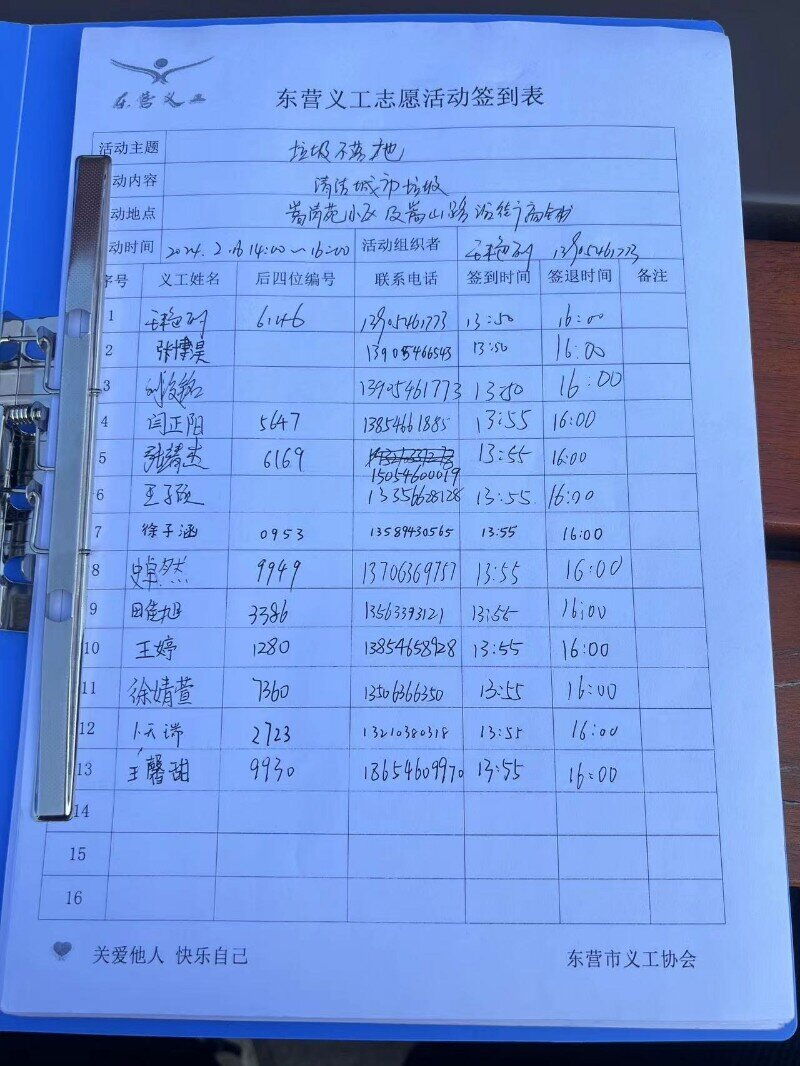 东营义工
东营义工志愿活动签到表
活动主题 垃圾不落地
动内容 清洁城市垃圾
动地点
动时间 14:00～16:00 活动组织者 13905461773
序号 义工姓名 后四位编号 联系电话 签到时间 签退时间 备注
1 6146 13905461773 13:50 16:00
2 张博昊 13905466543 13:50 16:00
3 13905461773 13:50 16:00
4 闫正阳 5647 13854661885 13:55 16:00
5 6169 15054600019 13:55 16:00
6 13356628128 13:55 16:00
7 徐子涵 0953 13589430565 13:55 16:00
8 9949 13706369757 13:55 16:00
9 3386 13563393121 13:55 16:00
10 王婷 1280 13854658928 13:55 16:00
11 徐婧萱 7360 13506366350 13:55 16:00
12 卜天瑞 2723 13210380318 13:55 16:00
13 王馨甜 9930 18654609970 13:55 16:00
14
15
16
关爱他人 快乐自己 东营市义工协会